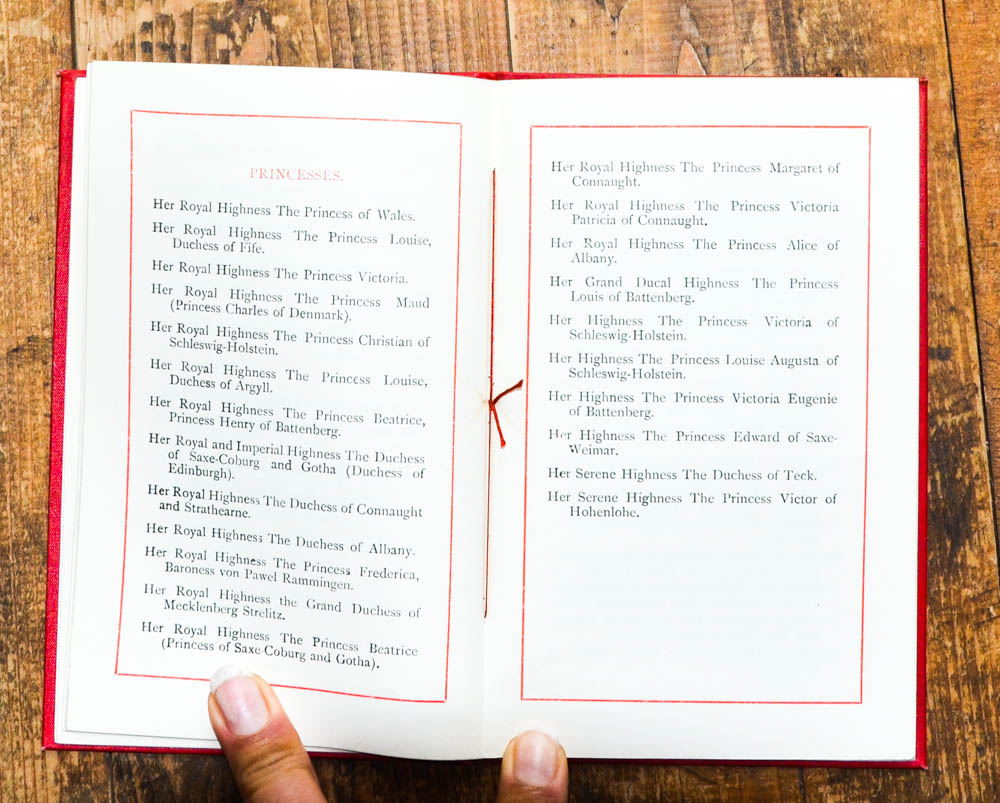 PRINCESSES.
Her Royal Highness The Princess of Wales.
Her Royal Highness The Princess Louise,
Duchess of Fife.
Her Royal Highness The Princess Victoria.
Her Royal Highness The Princess Maud
(Princess Charles of Denmark).
Her Royal Highness The Princess Christian of
Schleswig-Holstein.
Her Royal Highness The Princess Louise,
Duchess of Argyll.
Her Royal Highness The Princess Beatrice,
Princess Henry of Battenberg.
Her Royal and Imperial Highness The Duchess
of Saxe-Coburg and Gotha (Duchess of
Edinburgh).
Her Royal Highness The Duchess of Connaught
and Strathearne.
Her Royal Highness The Duchess of Albany.
Her Royal Highness The Princess Frederica,
Baroness von Pawel Rammingen.
Her Royal Highness the Grand Duchess of
Mecklenberg Strelitz.
Her Royal Highness The Princess Beatrice
(Princess of Saxe-Coburg and Gotha).
Her Royal Highness The Princess Margaret of
Connaught.
Her Royal Highness The Princess Victoria
Patricia of Connaught.
Her Royal Highness The Princess Alice of
Albany.
Her Grand Ducal Highness The Princess
Louis of Battenberg.
Her Highness The Princess Victoria of
Schleswig-Holstein.
Her Highness The Princess Louise Augusta of
Schleswig-Holstein.
Her Highness The Princess Victoria Eugenie
of Battenberg.
Her Highness The Princess Edward of Saxe-
Weimar.
Her Serene Highness The Duchess of Teck.
Her Serene Highness The Princess Victor of
Hohenlohe.